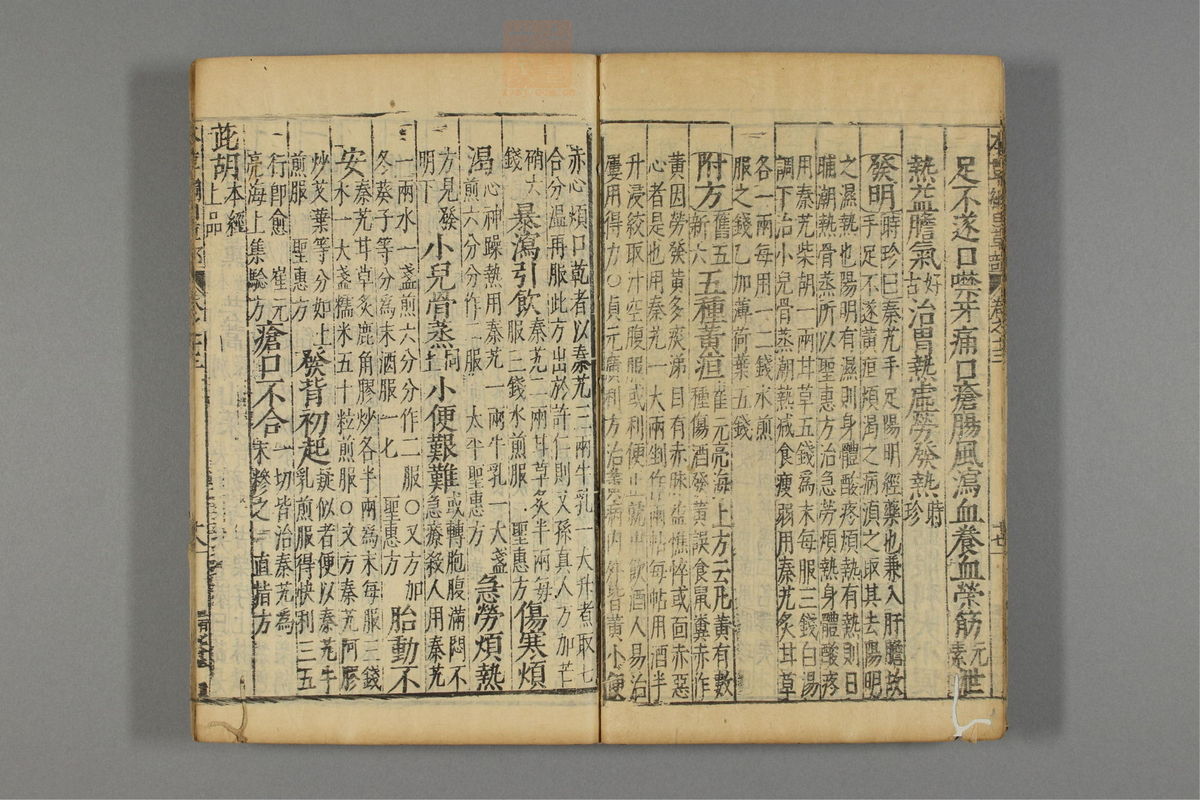 足不遂口噤牙痛口瘡腸風瀉血養血榮筋元素泄
熱益膽氣好古治胃熱虛勞發熱時珍
發明時珍曰秦艽手足陽明經藥也兼入肝膽故
手足不遂黃疸煩渴之病須之取其去陽明
之濕熱也陽明有濕則身體酸疼煩熱有熱則日
晡潮熱骨蒸所以聖惠方治急勞煩熱身體酸疼
用秦艽柴胡一兩甘草五錢爲末每服三錢白湯
調下治小兒骨蒸潮熱減食瘦弱用秦艽炙甘草
各一兩每用一二錢水煎
服之錢乙加薄荷葉五錢
附方舊五新六五種黃疸崔元亮海上方云凡黃有數
種傷酒發黃誤食鼠糞亦作
黃因勞發黃多痰涕目有赤脉益憔悴或面赤惡
心者是也用秦艽一大兩剉作兩帖每帖用酒半
升浸絞取汁空腹服或利便止就中飲酒人易治
屢用得力○貞元廣利方治黃小便
赤心煩口乾者以秦艽三兩牛乳一大升煮取七
合分溫再服此方出於許仁則又孫真人方加芒
硝六錢暴瀉引飲秦艽二兩甘草炙半兩每
服三錢水煎服 聖惠方傷寒煩
渴心神躁熱用秦艽一兩牛乳一大盞
煎六分分作二服 太平聖惠方急勞煩熱
方見發明下小兒骨蒸同上小便艱難或轉胞腹滿悶不
急療殺人用秦艽
一兩水一盞煎六分分作二服○又方加
冬葵子等分為末酒服一匕 聖惠方胎動不
安秦艽甘草炙鹿角膠炒各半兩為末每服三錢
水一大盞糯米五十粒煎服○又方秦艽阿膠
炒艾葉等分如上
煎服 聖惠方發背初起疑似者便以秦艽牛
乳煎服得快利三五
行即愈 崔元
亮海上集驗方瘡口不合一切皆治秦艽為
末摻之 直指方
茈胡本經上品